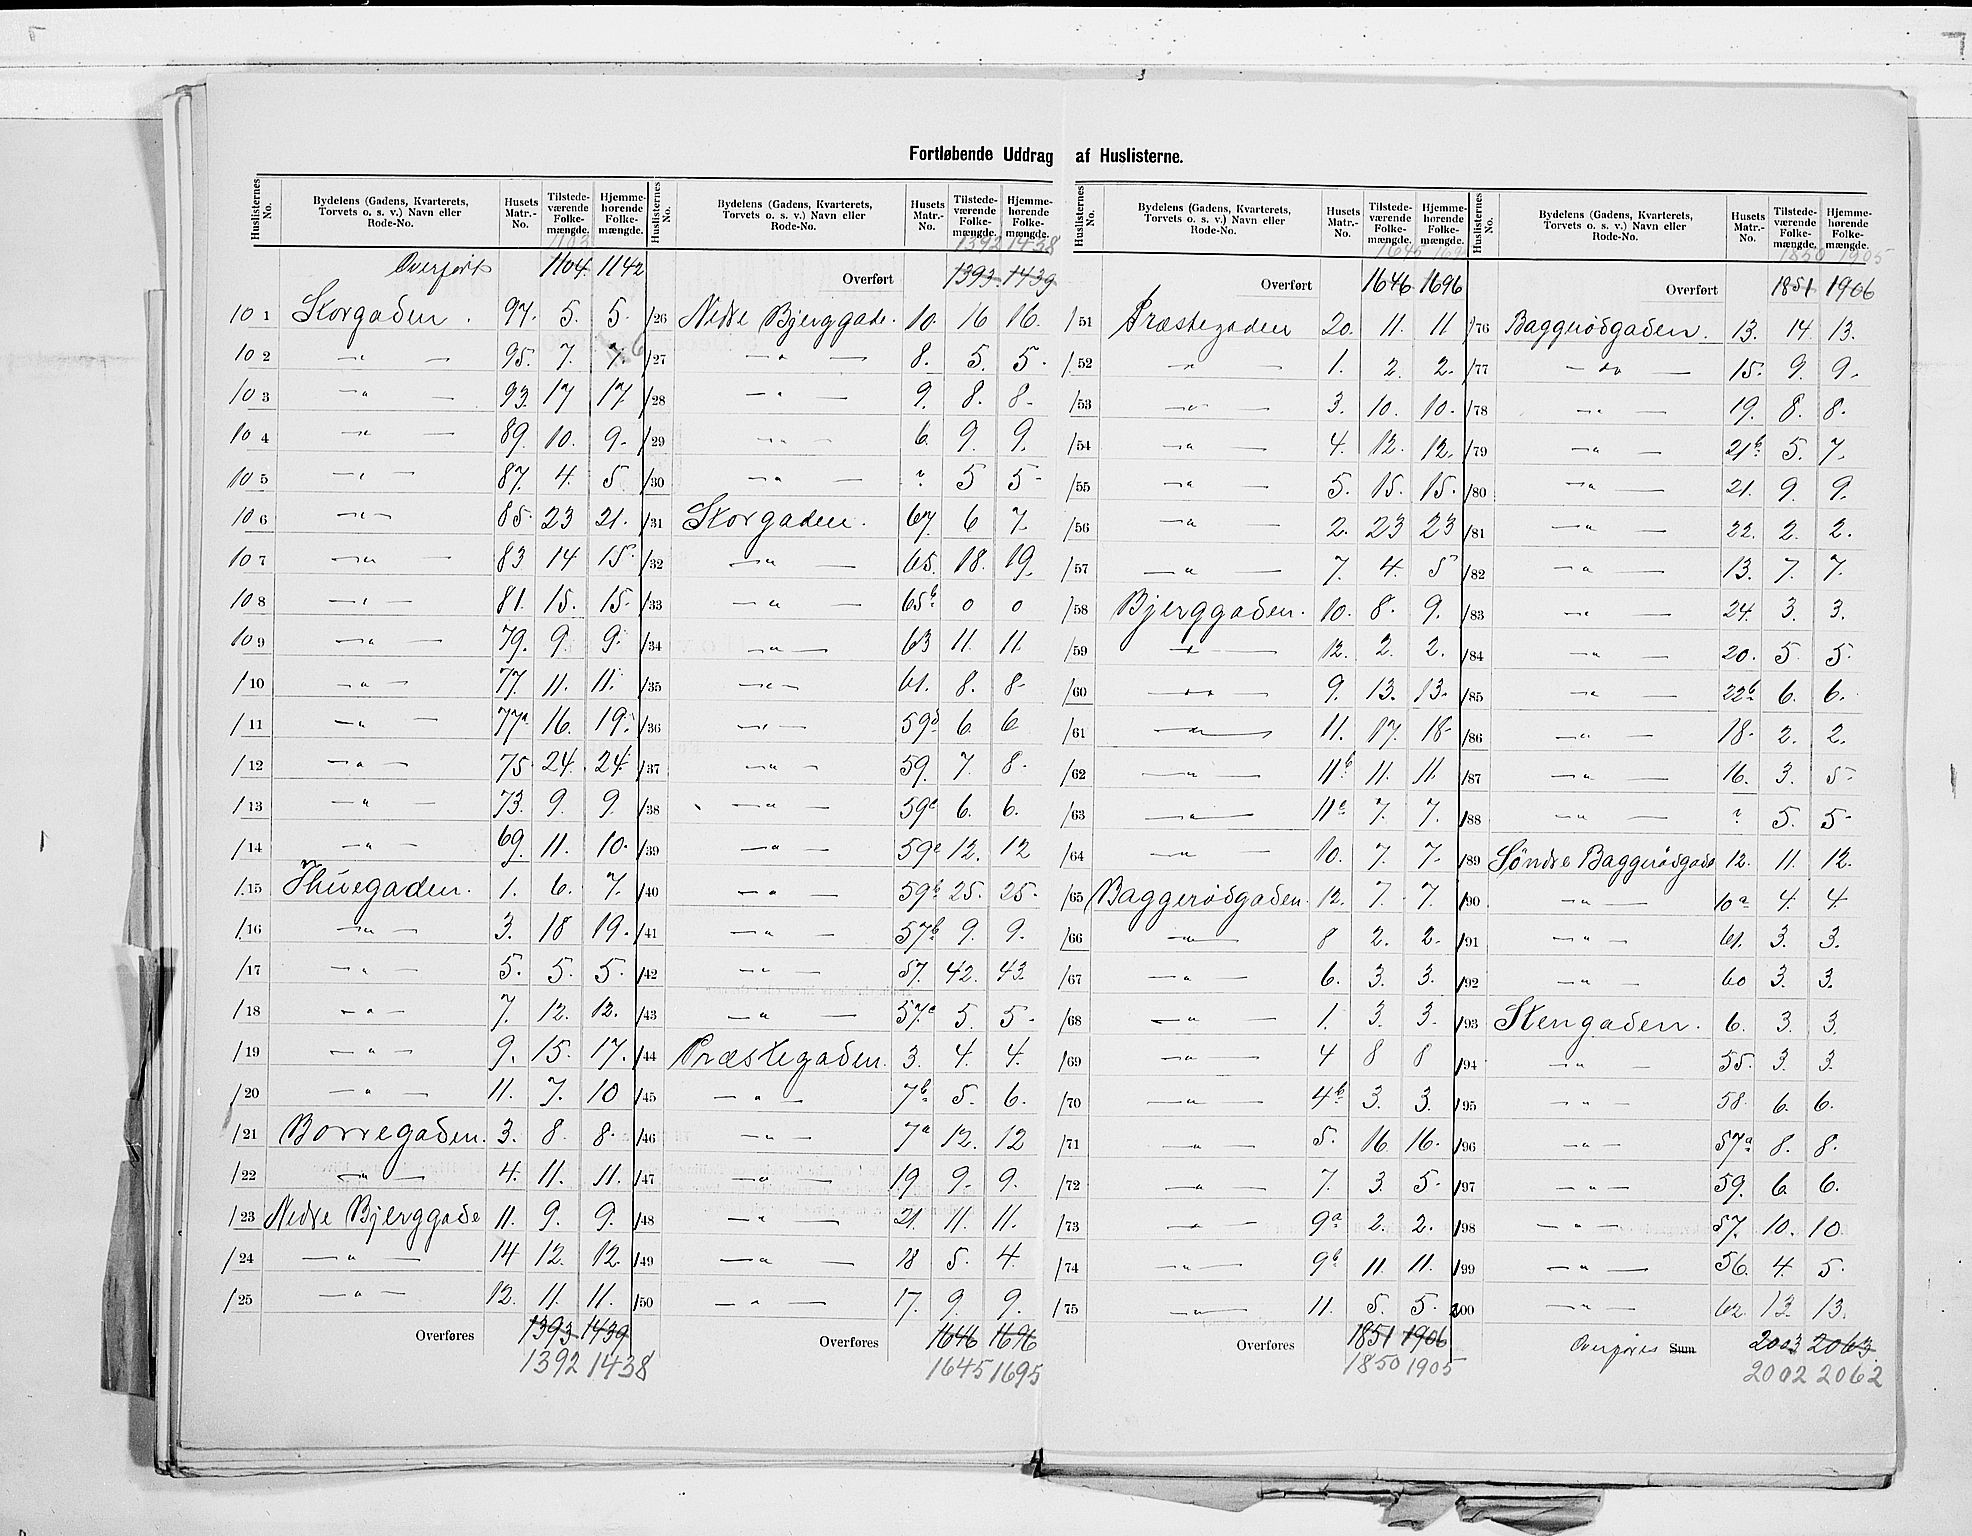 Fortløbende Uddrag af Huslisterne.
Huslisternes No. | Bydelens (Gadens, Kvarterets, Torvets o. s. v.) Navn eller Rode-No. | Husets Matr.-No. | Tilstedeværende Folkemængde. | Hjemmehørende Folkemængde.
1103
Overført 1104. 1142
10 1 Storgaden . 97. 5. 5.
10 2 — " — 95. 7. 7. 6
10 3 — " — 93. 17 17.
10 4 — " — 89. 10. 9.
10 5 — " — 87. 4. 5
10 6 — " — 85. 23 21.
10 7 — " — 83 14 15.
10 8 — " — 81. 15. 15.
10 9 — " — 79. 9. 9.
/10 — " — 77. 11. 11.
/11 — " — 77a 16. 19.
/12 — " — 75. 24. 24.
/13 — " — 73. 9. 9.
/14 — " — 69. 11. 10.
/15 Thuegaden. 1. 6. 7.
/16 — " — 3. 18 19.
/17 — " — 5. 5. 5.
/18 — " — 7. 12. 12.
/19 — " — 9. 15. 17.
/20 — " — 11. 7. 10
/21 Borregaden. 3. 8. 8.
/22 — " — 4. 11. 11.
/23 Nedre Bjerggade 11. 9. 9.
/24 — " — 14 12. 12.
/25 — " — 12. 11. 11.
Overføres 1393 1439
1392 1438
Huslisternes No. | Bydelens (Gadens, Kvarterets, Torvets o. s. v.) Navn eller Rode-No. | Husets Matr.-No. | Tilstedeværende Folkemængde. | Hjemmehørende Folkemængde.
1392 1438
Overført 1393. 1439
/26 Nedre Bjerggade. 10. 16 16.
/27 — " — 8. 5. 5.
/28 — " — 9. 8. 8.
/29 — " — 6. 9. 9.
/30 — " — ? 5 5
/31 Storgaden. 67. 6 7.
/32 — " — 65. 18. 19.
/33 — " — 65b 0 0
/34 — " — 63 11. 11.
/35 — " — 61. 8. 8.
/36 — " — 59d 6. 6
/37 — " — 59. 7. 8.
/38 — " — 59e 6. 6.
/39 — " — 59c 12. 12
/40 — " — 59b 25. 25.
/41 — " — 57b 9. 9.
/42 — " — 57. 42. 43.
/43 — " — 57a 5. 5.
/44 Præstegaden. 3. 4. 4.
/45 — " — 7b 5. 6.
/46 — " — 7a 12. 12
/47 — " — 19 9. 9.
/48 — " — 21. 11. 11.
/49 — " — 18 5. 4.
/50 — " — 17. 9. 9.
Overføres 1646 1696
1645 1695
Huslisternes No. | Bydelens (Gadens, Kvarterets, Torvets o. s. v.) Navn eller Rode-No. | Husets Matr.-No. | Tilstedeværende Folkemængde. | Hjemmehørende Folkemængde.
1645
Overført 1646 1696
/51 Præstegaden 20. 11. 11
/52 — " — 1. 2. 2.
/53 — " — 3. 10. 10.
/54 — " — 4. 12. 12.
/55 — " — 5. 15. 15.
/56 — " — 2. 23 23
/57 — " — 7. 4. 5
/58 Bjerggaden. 10. 8. 9.
/59 — " — 12. 2. 2.
/60 — " — 9. 13. 13.
/61 — " — 11. 17. 18.
/62 — " — 11b 11. 11.
/63 — " — 11c 7. 7.
/64 — " — 10. 7. 7.
/65 Baggerødgaden. 12. 7. 7.
/66 — " — 8 2. 2.
/67 — " — 6. 3. 3.
/68 — " — 1. 3. 3.
/69 — " — 4 8 8
/70 — " — 4b 3. 3.
/71 — " — 5. 16 16.
/72 — " — 7. 3. 5.
/73 — " — 9a 2. 2.
/74 — " — 9b 11. 11.
/75 — " — 11. 5. 5.
Overføres 1851 1906
1850 1905
Huslisternes No. | Bydelens (Gadens, Kvarterets, Torvets o. s. v.) Navn eller Rode-No. | Husets Matr.-No. | Tilstedeværende Folkemængde. | Hjemmehørende Folkemængde.
1850 1905
Overført 1851 1906
/76 Baggerødgaden. 13. 14. 13.
/77 — " — 15. 9. 9.
/78 — " — 19. 8. 8.
/79 — " — 21b 5. 7.
/80 — " — 21. 9. 9.
/81 — " — 22. 2. 2.
/82 — " — 13. 7. 7.
/83 — " — 24. 3. 3.
/84 — " — 20. 5. 5.
/85 — " — 22b 6. 6.
/86 — " — 18. 2. 2.
/87 — " — 16. 3. 5.
/88 — " — ? 5. 5.
/89 Søndre Baggerødgade 12. 11. 12.
/90 — " — 10a 4. 4.
/91 — " — 61. 3. 3.
/92 — " — 60 3. 3.
/93 Stengaden. 6. 3. 3.
/94 — " — 55. 3. 3.
/95 — " — 58. 6. 6.
/96 — " — 57a 8. 8.
/97 — " — 59. 6. 6.
/98 — " — 57. 10. 10.
/99 — " — 56. 4. 5.
200 — " — 62. 13. 13.
Overføres Sum 2003 2063
2002 2062